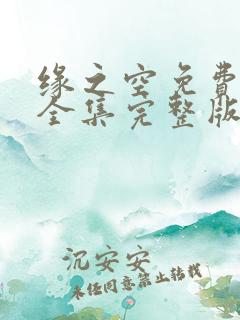 缘之空免费
全集完整版
沉安安
未经同意禁止转载